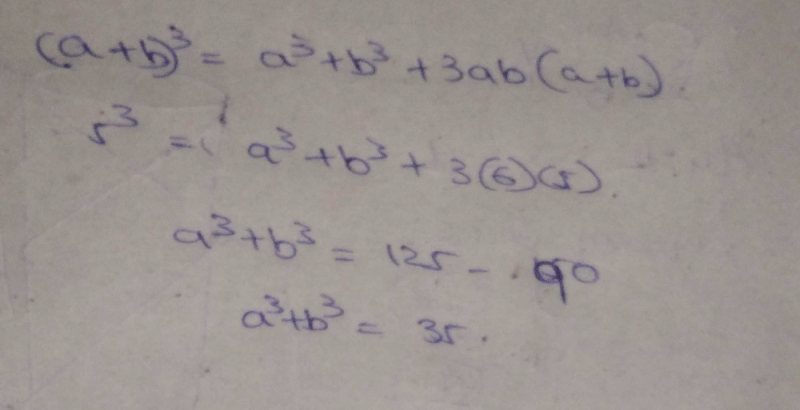 (a+b)³ = a³+b³+3ab(a+b).
5³ = a³+b³+3(6)(5).
a³+b³ = 125 - 90
a³+b³ = 35.